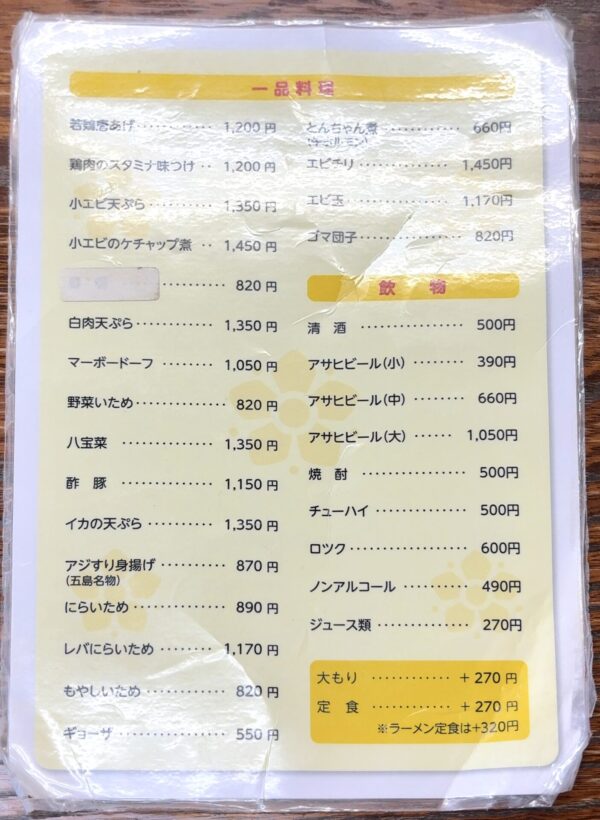 一品料理
若鶏唐あげ ············ 1,200 円
鶏肉のスタミナ味つけ ·· 1,200 円
小エビ天ぷら ·········· 1,350 円
小エビのケチャップ煮 ·· 1,450 円
············ 820 円
白肉天ぷら ············ 1,350 円
マーボードーフ ········ 1,050 円
野菜いため ············ 820 円
八宝菜 ·············· 1,350 円
酢 豚 ·············· 1,150 円
イカの天ぷら ·········· 1,350 円
アジすり身揚げ ········ 870 円
(五島名物)
にらいため ············ 890 円
レバにらいため ········ 1,170 円
もやしいため ·········· 820 円
ギョーザ ·············· 550 円
とんちゃん煮 ·········· 660円
エビチリ ·············· 1,450円
エビ玉 ·············· 1,170円
ゴマ団子 ·············· 820円
飲 物
清 酒 ·············· 500円
アサヒビール(小) ······ 390円
アサヒビール(中) ······ 660円
アサヒビール(大) ······ 1,050円
焼 酎 ·············· 500円
チューハイ ············ 500円
ロツク ·············· 600円
ノンアルコール ········ 490円
ジュース類 ············ 270円
大もり ············ + 270 円
定 食 ············ + 270 円
※ラーメン定食は+320円